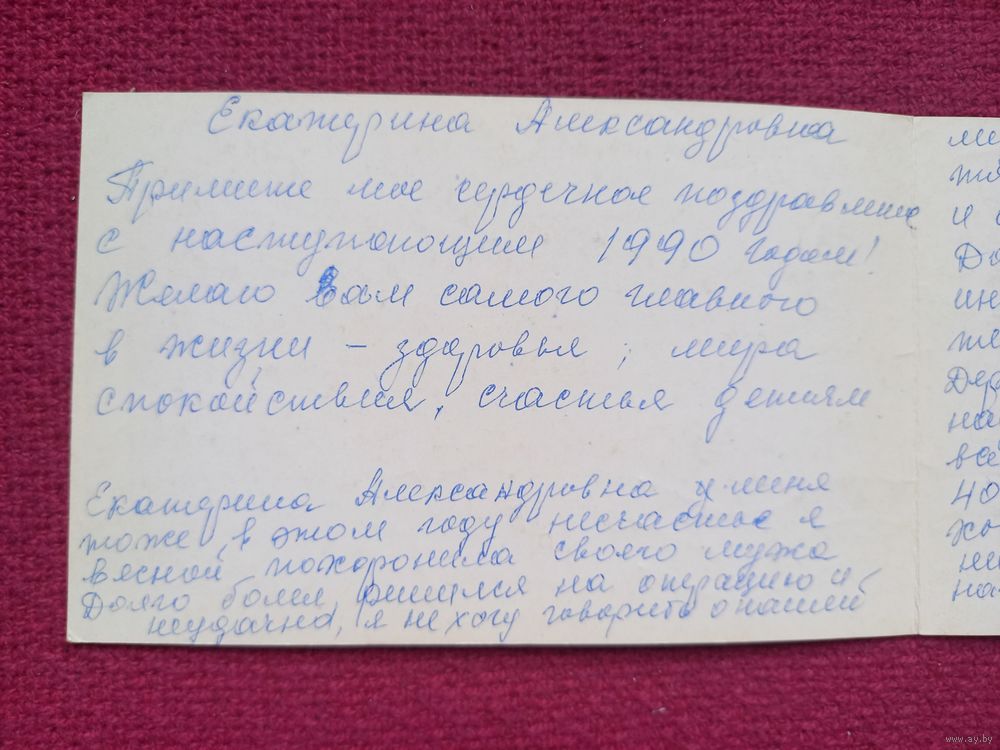 Екатерина Александровна
Примите мое сердечное поздравление
с наступающим 1990 годом!
Желаю Вам самого главного
в жизни – здоровья, мира
спокойствия, счастья детям
Екатерина Александровна у меня
тоже в этом году несчастье я
весной похоронила своего мужа
Долго болел, решился на операцию и
неудачно, я не хочу говорить о нашей
ми
тя
и
До
ин
же
Дер
на
все
40
хо
ни
на
www.ay.by